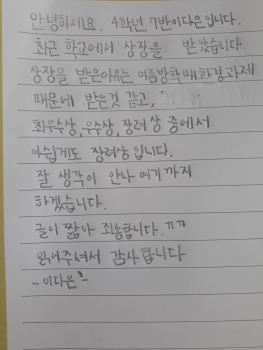 안녕하세요. 4학년 7반 이다은입니다.
최근 학교에서 상장을 받았습니다.
상장을 받은이유는 여름방학때 환경과제
때문에 받은것 같고,
최우수상, 우수상, 장려상 중에서
아쉽게도 장려상입니다.
잘 생각이 안나 여기까지
하겠습니다.
글이 짧아 죄송합니다. ㅠㅠ
읽어주셔서 감사합니다
-이다은-